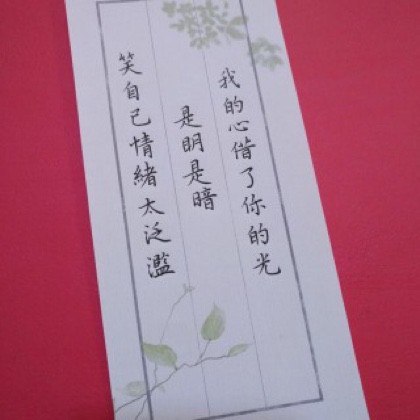 我的心借了你的光
是明是暗
笑自己情緒太泛濫